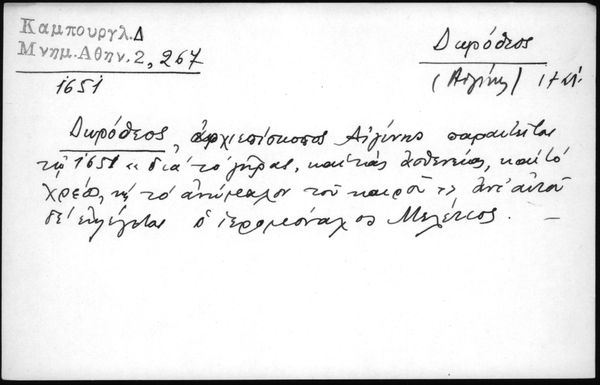 Καμπουργλ.Δ
Μνημ.Αθην. 2, 267
1651
Δωρόθεος
(Αἰγίνης)
Δωρόθεος, ἀρχιεπίσκοπος Αἰγίνης παραιτεῖται
τῷ 1651 « διὰ τὸ γῆρας, καὶ τὰς ἀσθενείας, καὶ τὸ
χρέος, κ τὸ ἀνώμαλον τοῦ καιροῦ » ἀντ' αὐτοῦ
δὲ ἐκλέγεται ὁ ἱερομόναχος Μελέτιος. —